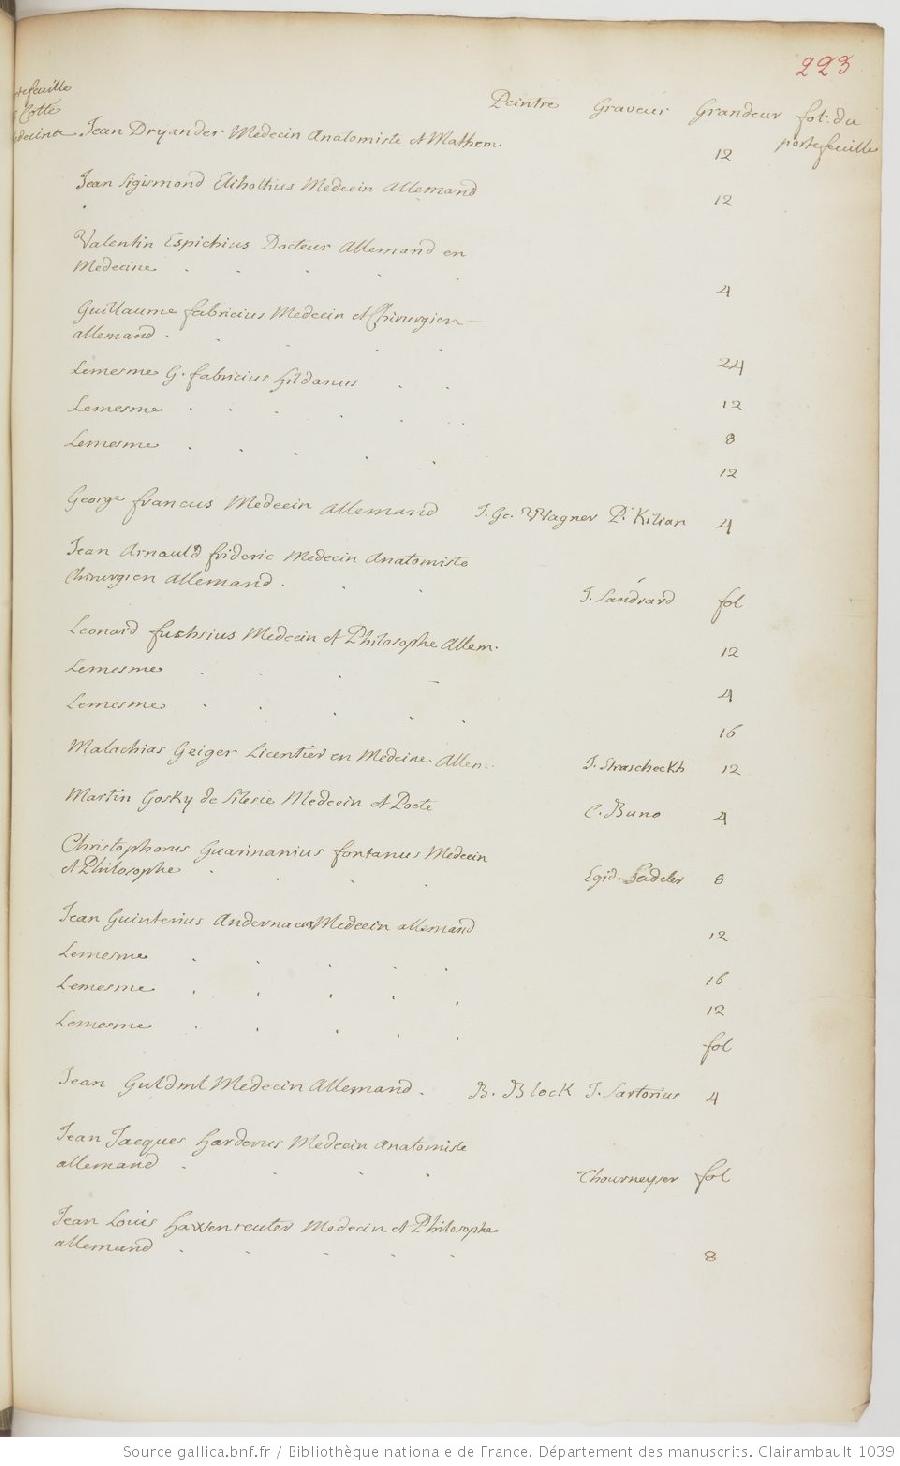 223
Peintre Graveur Grandeur fol: du
portefeuille
tefeuille
Cotté
Jean Dryander Medecin Anatomiste et Mathem. 12
Jean Sigismond Elsholthius Medecin Allemand 12
Valentin Espichius Docteur Allemand en
Medecine 4
Guillaume fabricius Medecin et Chirurgien
allemand 24
Lemesme G. fabricius hildanus 12
Lemesme 8
Lemesme 12
George francus Medecin Allemand J. Ge. Wagner P. Kilian 4
Jean Arnauld frideric Medecin Anatomiste
Chirurgien Allemand J. Sandrard fol
Leonard fuchsius Medecin et Philosophe Allem. 12
Lemesme 4
Lemesme 16
Malachias Geiger Licentier en Medcine Allem. J. Strascheckh 12
Martin Gosky de Silesie Medecin et Poete C. Buno 4
Christophorus Guarinanius fontanus Medecin
et Philosophe Egid. Sadeler 8
Jean Guinterius Andernacus Medecin allemand 12
Lemesme 16
Lemesme 12
Lemesme fol
Jean Guldml Medecin Allemand. B. Block J. Sartorius 4
Jean Jacques harderus Medecin Anatomiste
allemand Thourneyser fol
Jean Louis hawenreuter Medecin et Philosophe
allemand 8
Source gallica.bnf.fr / Bibliothèque nationale de France. Département des manuscrits. Clairambault 1039